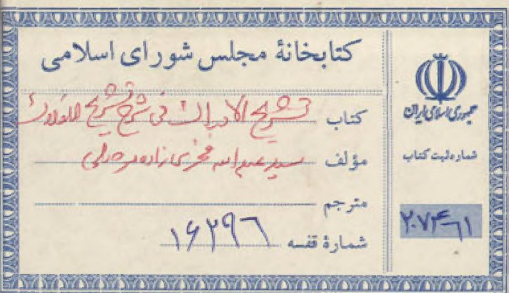 کتابخانهٔ مجلس شورای اسلامی
کتاب تشریح الادراک فی شرح تشریح الافلاک
مؤلف سید عبدالله فخری زاده
مترجم
شمارهٔ قفسه ۱۶۲۹۶
جمهوری اسلامی ایران
شماره ثبت کتاب
۲۰۷۴۶۱